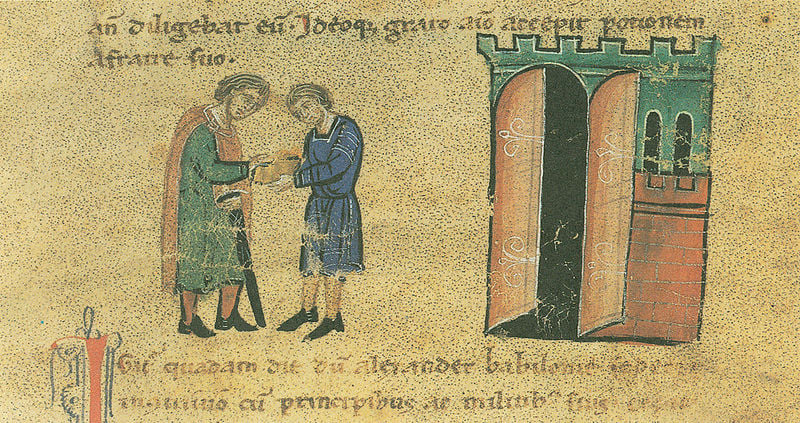 añ diligebat eũ. Ideoq; grato aĩo accepit potionem
a fratre suo.
quadam die dũ alexander babilonie
cũ principibus ac militib⁹